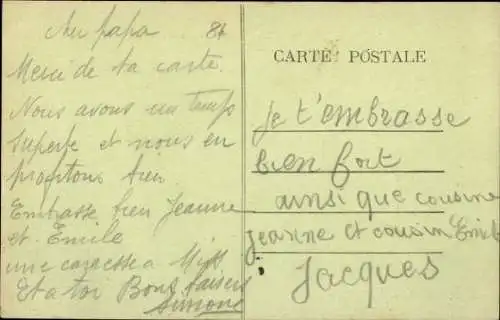 Au papa
81
Merci de ta carte.
Nous avons un temps
superbe et nous en
profitons bien
Embrasse bien Jeanne
et Emile
une caresse a Miss
Et a toi Bons baisers
Simone
CARTE POSTALE
je t'embrasse
bien fort
ainsi que cousine
jeanne et cousin Emile
Jacques